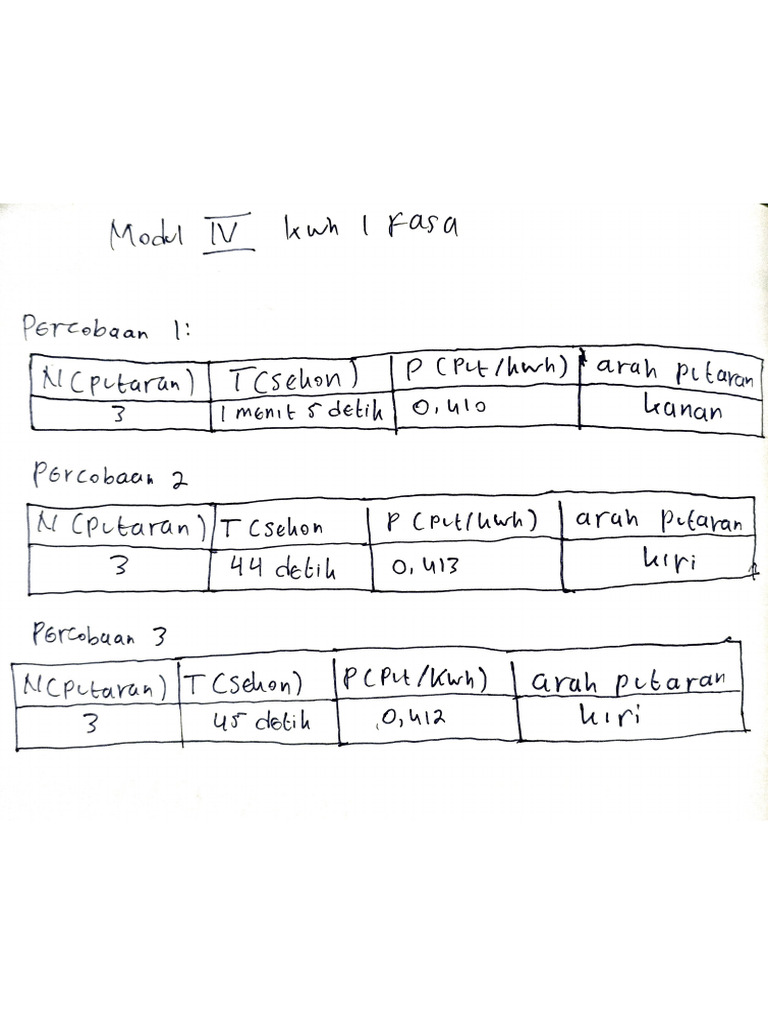 Modul IV kwh 1 Fasa
Percobaan 1:
N (putaran) T (sekon) P (Put/kwh) arah putaran
3 1 menit 5 detik 0,410 kanan
Percobaan 2
N (putaran) T (sekon P (put/kwh) arah putaran
3 44 detik 0,413 kiri
Percobaan 3
N (putaran) T (sekon) P (Put/Kwh) arah putaran
3 45 detik 0,412 kiri